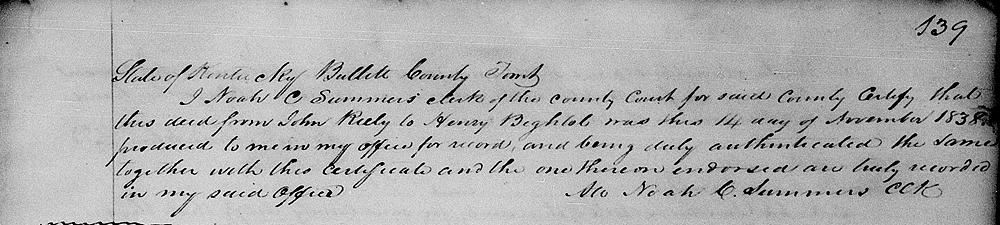 139
State of Kentucky Bullitt County Towit
I Noah C Summers clerk of the county Court for said County Certify that
this deed from John Riely to Henry Beghtol was this 14 day of November 1838
produced to me in my office for record, and being duly authenticated the same
together with this Certificate and the one thereon endorsed are truly recorded
in my said Office Att Noah C. Summers CCK